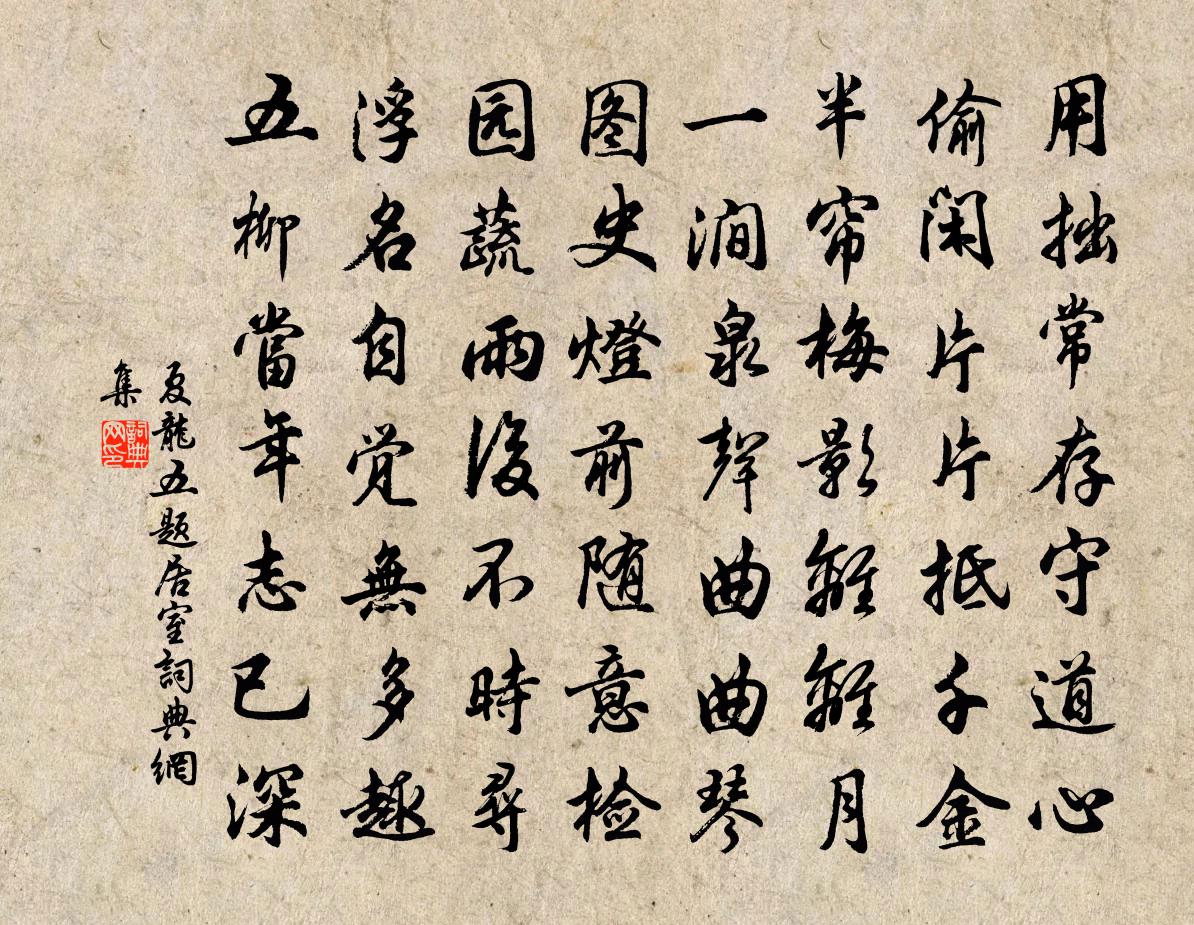 用拙常存守道心
偷閑片片抵千金
半帘梅影離離月
一澗泉聲曲曲琴
图史燈前随意检
园蔬雨後不時尋
浮名自觉無多趣
五柳當年志已深
夏龍五题居室詞典網
集
詞典
网印